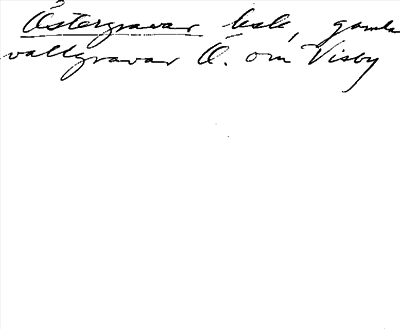 Östergravar besk, gamla
vallgravar Ö. om Visby